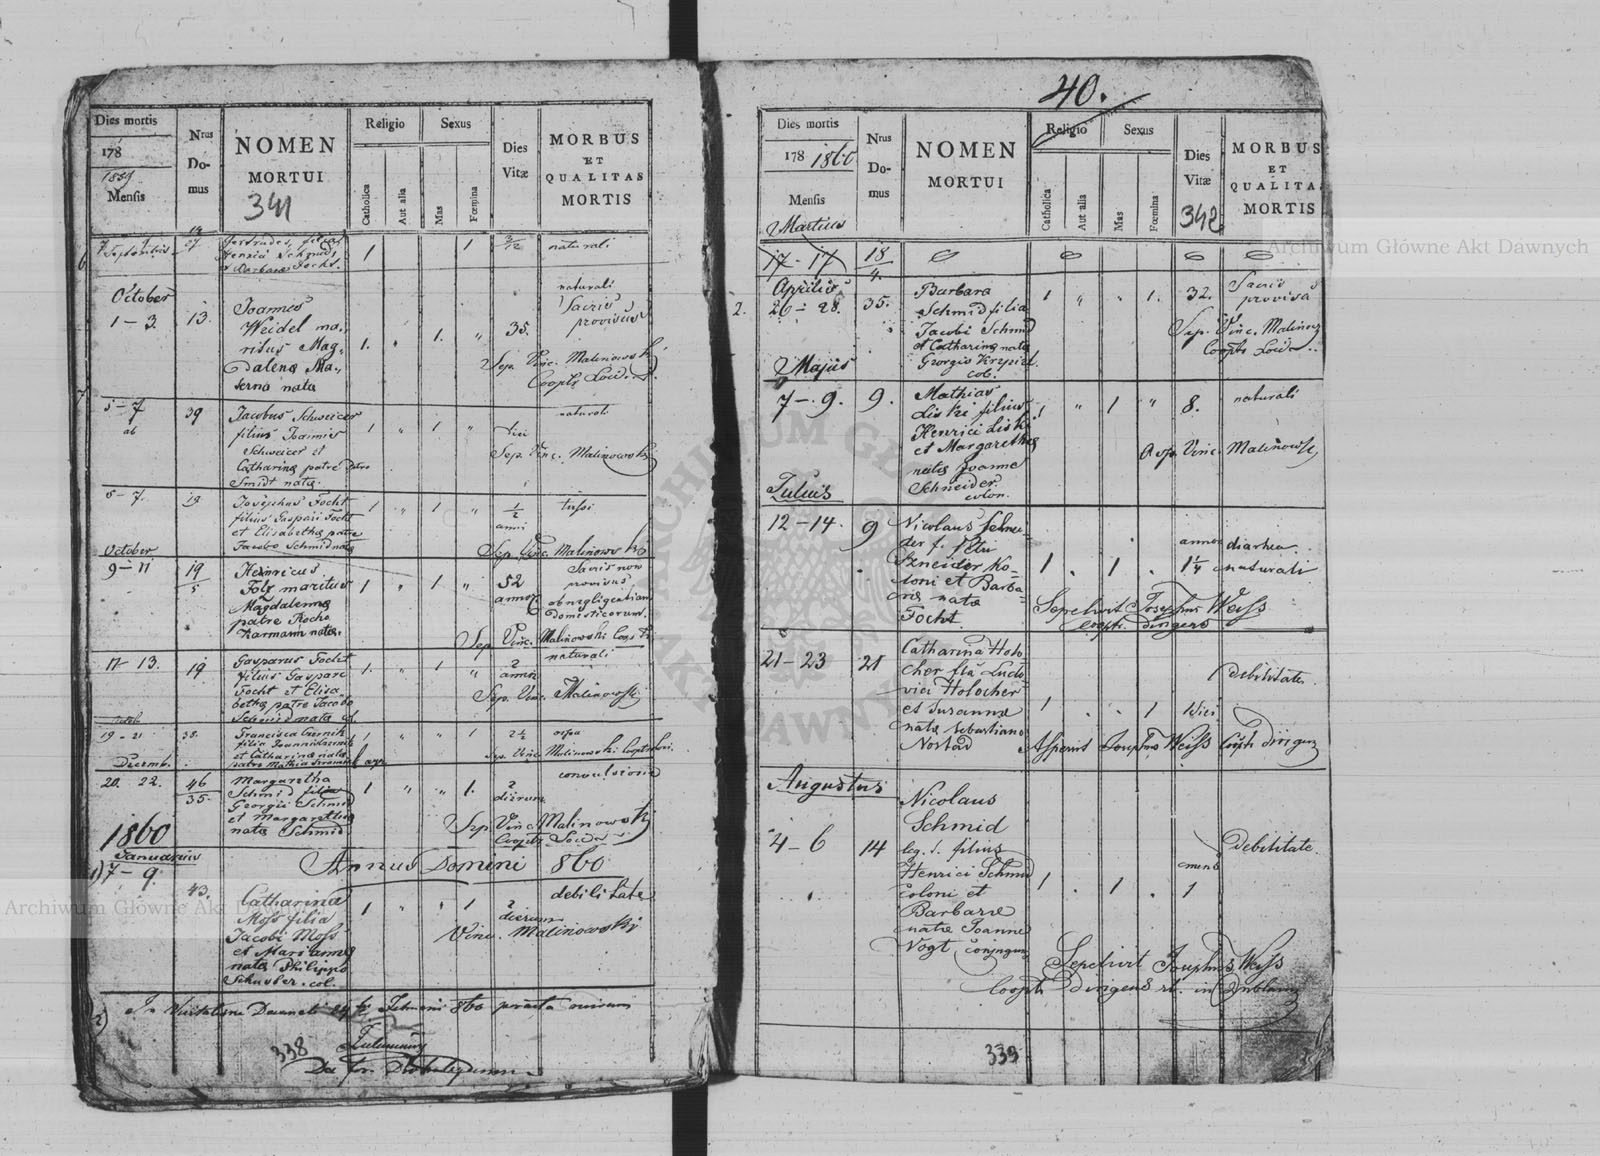 Dies mortis
178
1859
Mensis
Nrus
Do-
mus
NOMEN
MORTUI
341
Religio
Catholica
Aut alia
Sexus
Mas
Fœmina
Dies
Vitæ
MORBUS
ET
QUALITAS
MORTIS
Gertrudes, filia
Henrici Schmid
et Barbara Focht.
1
1
3/12
naturali
October
1-3.
13.
Joannes
Weidel ma-
ritus Mag-
dalena Ma-
terna nata
1.
1.
35.
naturali
Sacris
provisus
Sep. Vinc. Malinowski
Coopt.
5-7
39
Jacobus Schweicer
filius Joannis
Schweicer et
Catharina patre Petro
Smidt nata.
1
1
naturali
Sep. Vinc. Malinowski
5-7.
19
Josephus Focht
filius Gaspari Focht
et Elisabetha patre
Jacobo Schmid nata
1
1
1/2
anni
tussi
Sep. Vinc. Malinowski
October
9-11
19
Henricus
Folz maritus
Magdalenna
patre Rocho
Karmann nata.
1
1
52
annor
Sacris non
provisus
ob negligentiam
domesticorum.
Sep. Vinc. Malinowski
11-13.
19
Gasparus Focht
filius Gaspari
Focht et Elisa
betha patre Jacobo
Schmid nata
1.
1
2
anni
naturali
Sep. Vinc. Malinowski
19-21
38.
Francisca
filia
et Catharina nata
1
1
2½
Sep. Vinc. Malinowski
Decemb.
20. 22.
46
35.
Margaretha
Schmid filia
Georgii Schmid
et Margaretha
nata Schmid
1
1.
2
dierum
convulsione
Sep. Vinc. Malinowski
1860
Januarius
Annus Domini 860
1) 7-9.
43.
Catharina
Moss filia
Jacobi Moss
et Marianna
nata Philippo
Schusser. col.
1
1
2
dierum
debilitate
Vinc. Malinowski
338
40.
Dies mortis
178 1860
Mensis
Martius
Nrus
Do-
mus
NOMEN
MORTUI
Religio
Catholica
Aut alia
Sexus
Mas
Fœmina
Dies
Vitæ
342
MORBUS
ET
QUALITAS
MORTIS
17-17
18
4.
Aprilis
2.
26-28.
35.
Barbara
Schmid filia
Jacobi Schmid
et Catharina nata
Georgio Krzysiek
col.
1
1.
32.
Sacris
provisa
Sep. Vinc. Malinow
Majus
7-9.
9.
Mathias
Liski filius
Henrici Liski
et Margaretha
nata Joanne
Schneider
colon.
1
1
8.
naturali
Sep. Vinc. Malinowski
Julius
12-14.
9
Nicolaus Schnei-
der f. Petri
Sznejder Ko-
loni et Barba-
ra nata
Focht.
1
1
annor
1¼
diarhea.
naturali
Sepelivit Josephus Weiss
Coopt. dirigens
21-23
21
Catharina Holo
cher filia Ludo
vici Holocher
et Susanna
nata Sebastiano
1
1
1 diei
debilitate.
Josephus Weiss Coopt. dirigens
Augustus
4-6
14
Nicolaus
Schmid
leg. t. filius
Henrici Schmid
coloni et
Barbara
nata Joanne
Vogt conjugum
1
1
mens
1
Debilitate.
Sepelivit Josephus Weiss
Coopt. Dirigens
339
Archiwum Główne Akt Dawnych
Archiwum Główne Akt D